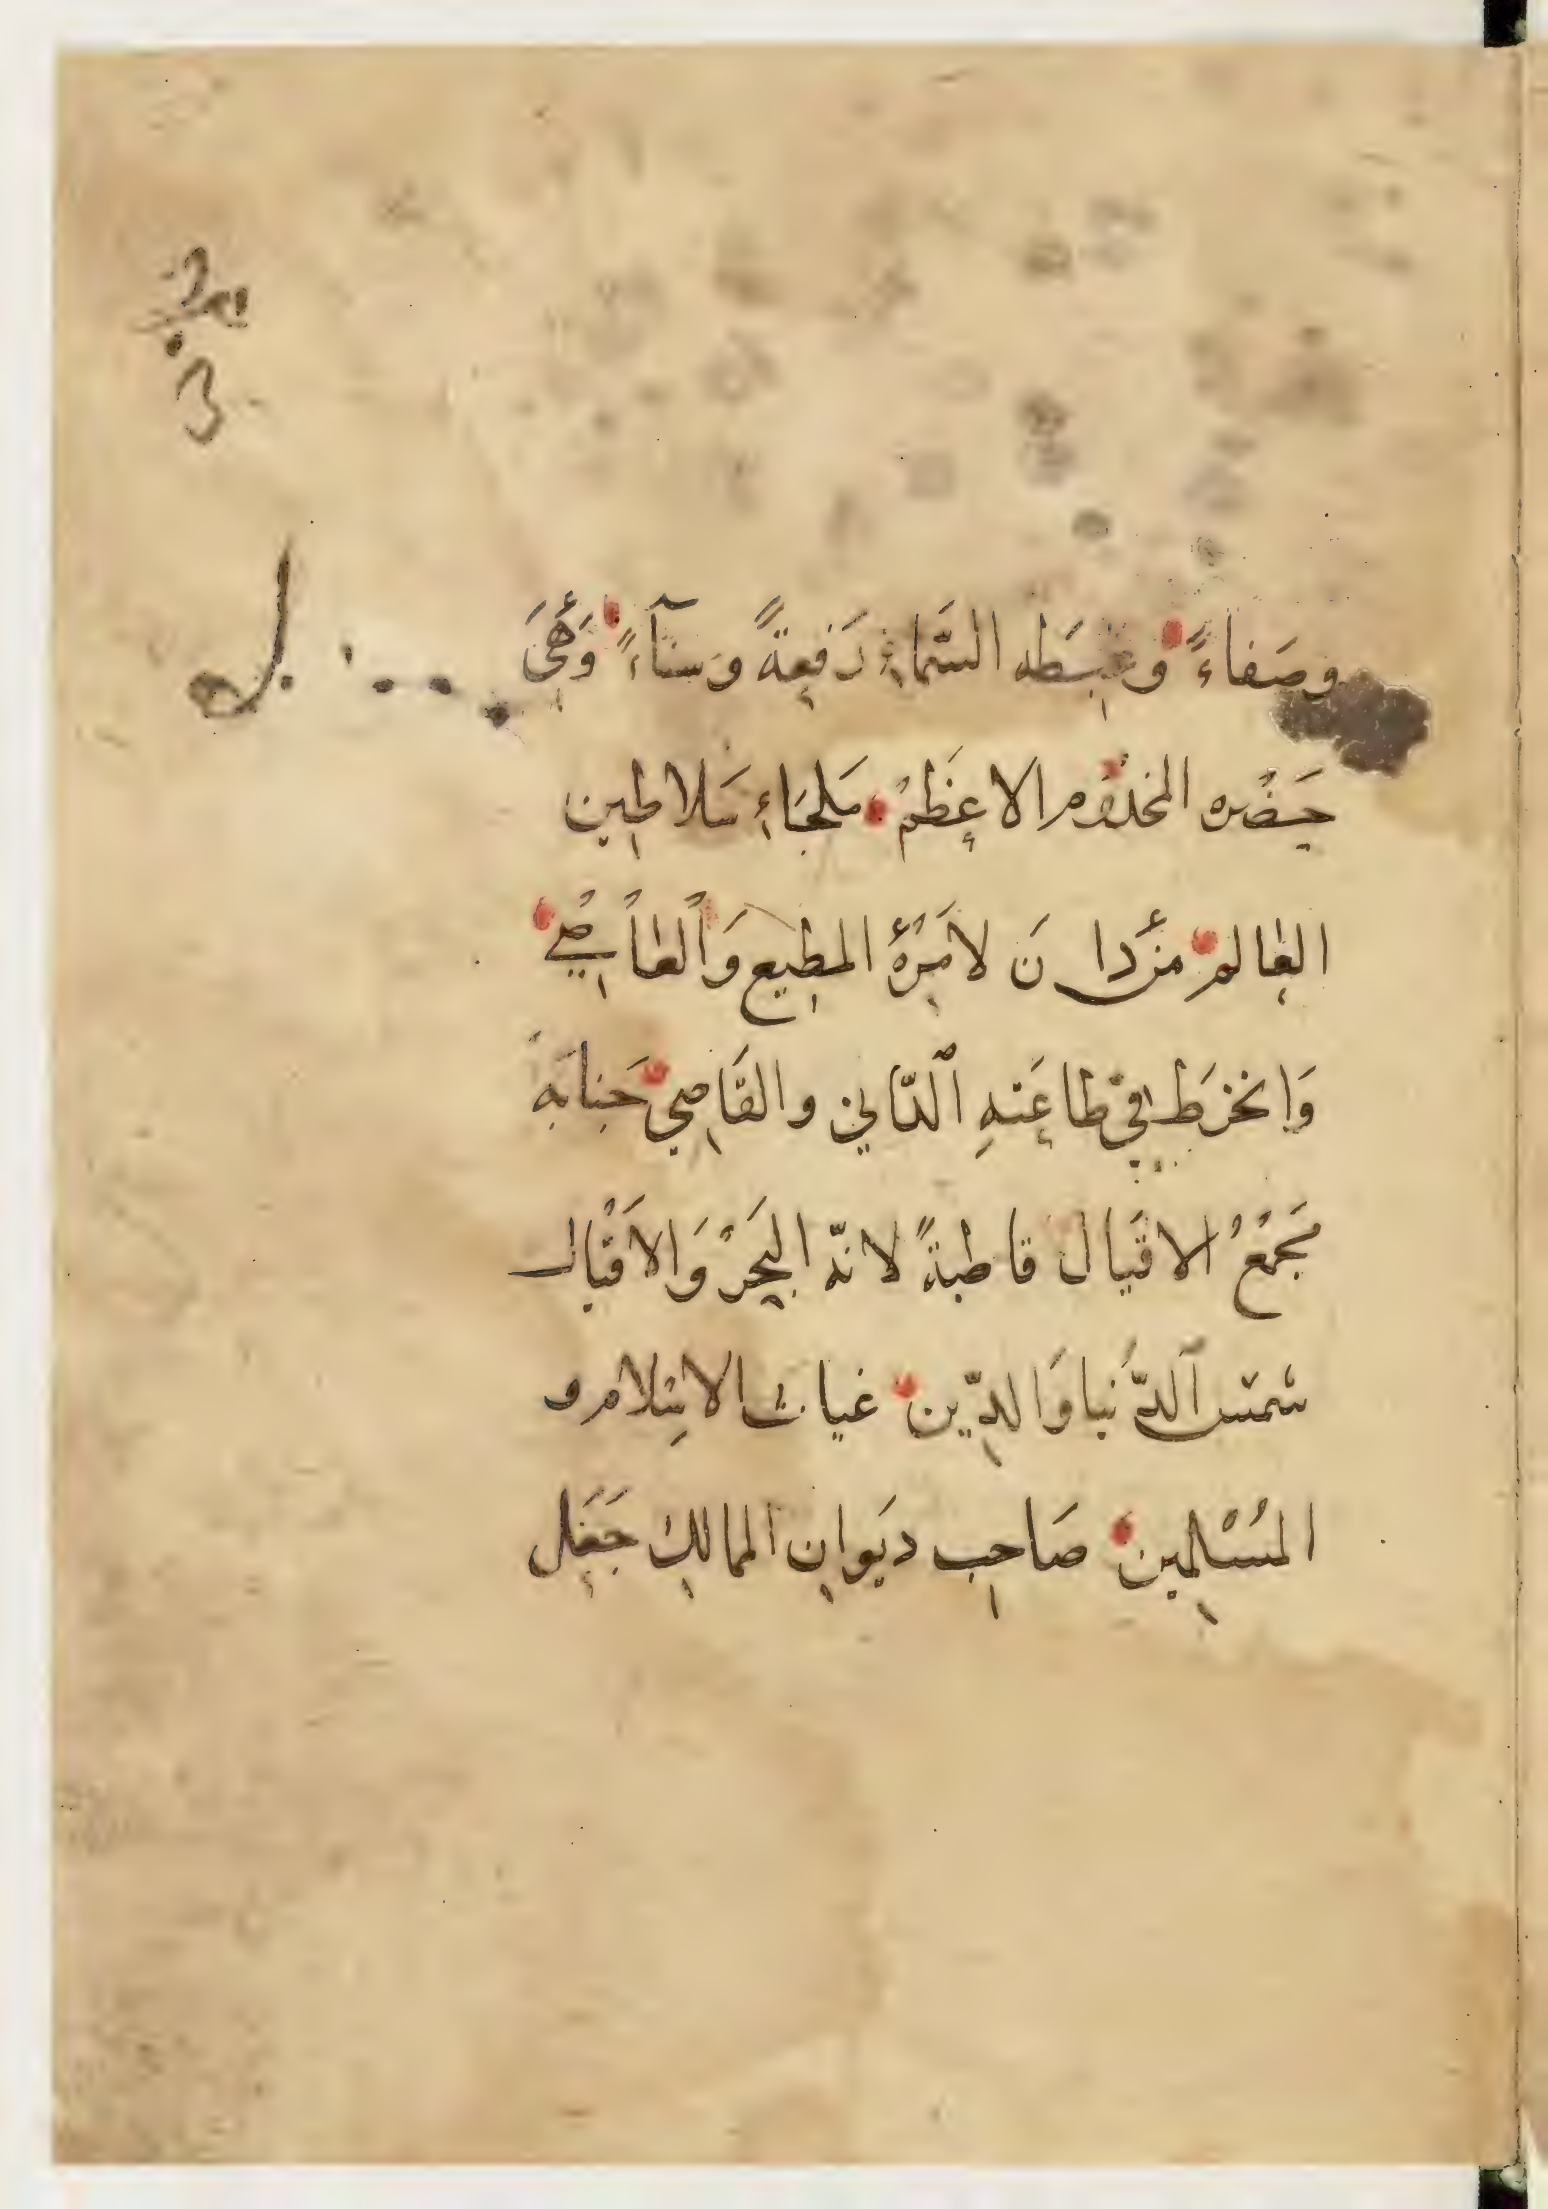 وصَفاءً وغبطه السَّماءِ رَفِعةً وَسناءً وَهِيَ
حَضْره المخدوم الاعظَمِ ملجَاءِ سَلاطِين
العالم مَنْ دانَ لاَمِرْهِ المطِيع وَالعاصِي
وَانخرَطَ في طاعَتهِ الدّاني والقَاصِي جَنابهَ
مَجمَعُ الاقيال قاطبةً لانّه البَحرْ وَالاَقبَال
شمس الدّنيا وَالدِّين غياث الاسِلام و
المسْلِمين صَاحِب ديَوانِ الممالِك جَعَل